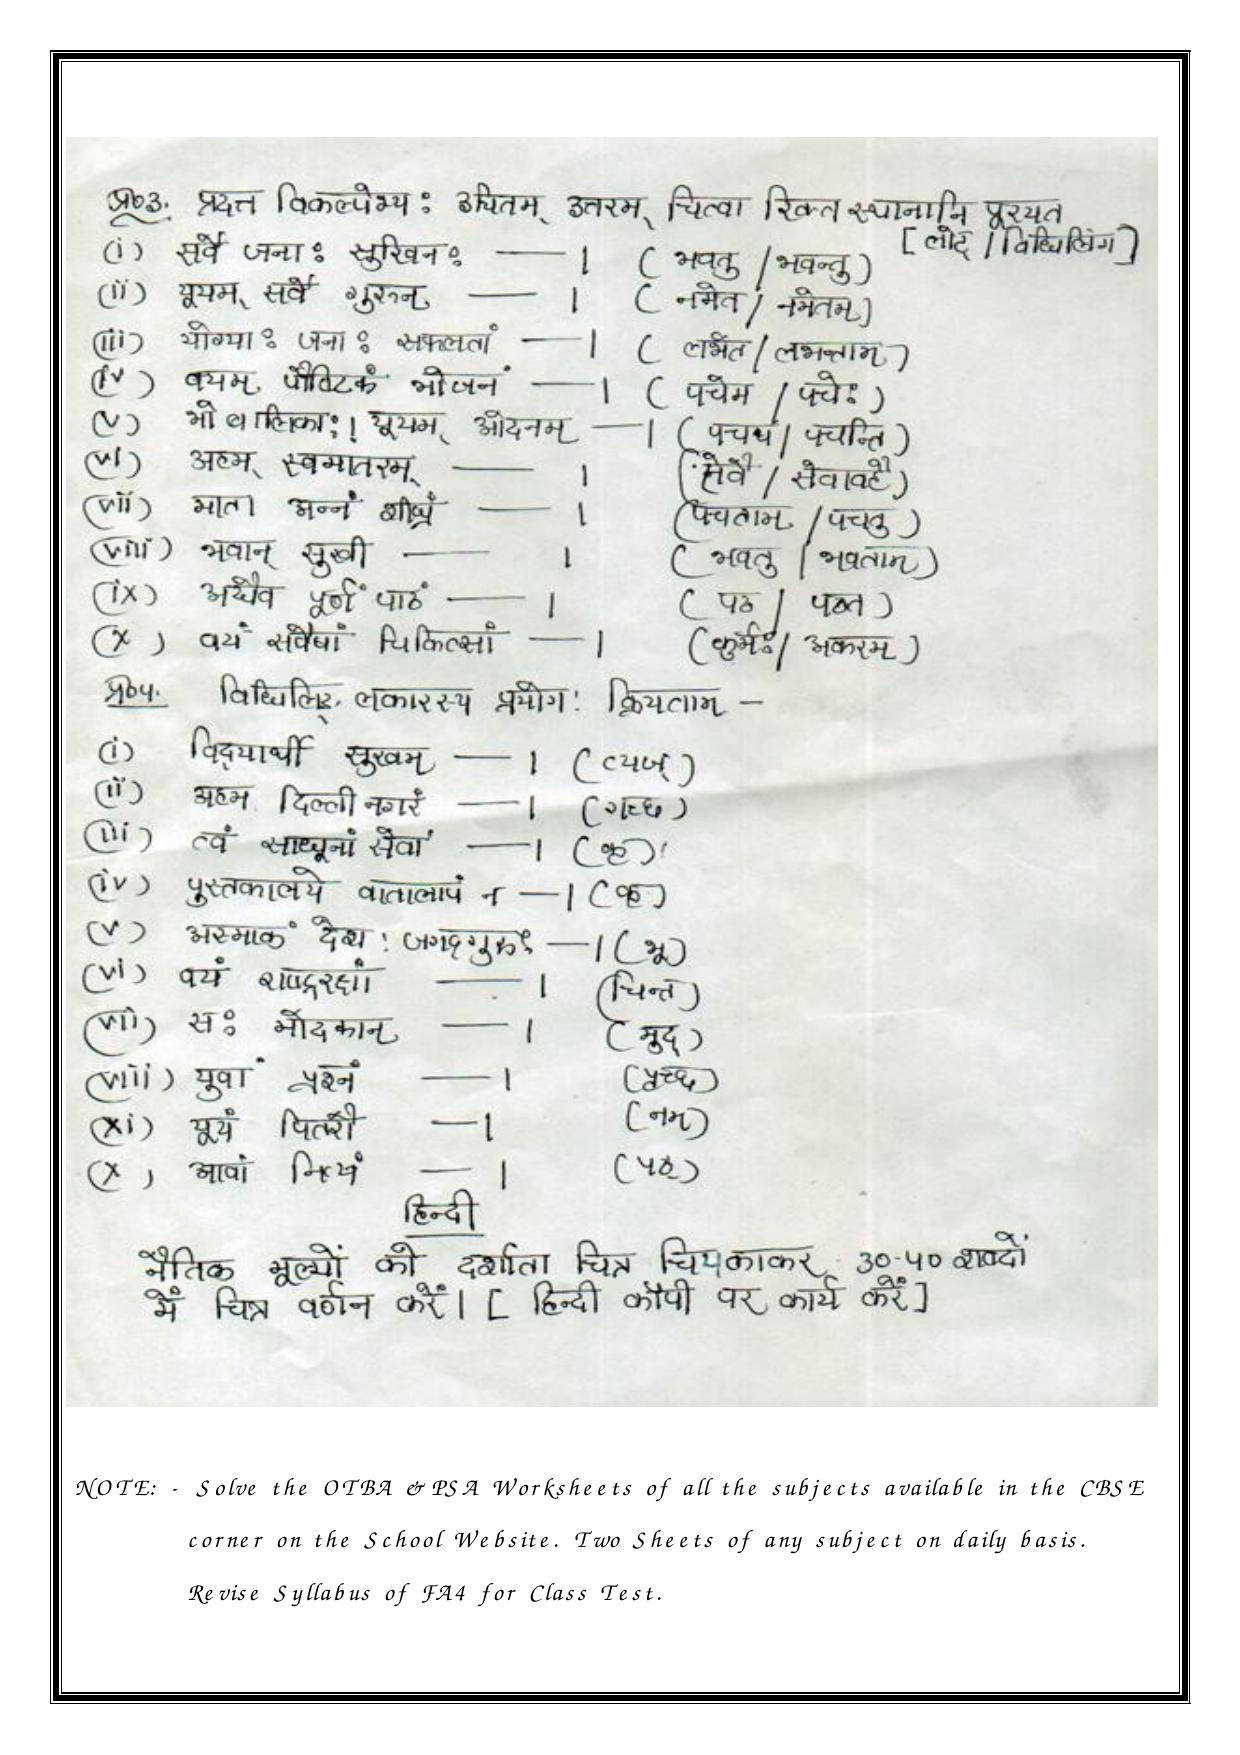 प्र०3. प्रदत्त विकल्पेभ्य: उचितम् उत्तरम् चित्वा रिक्त स्थानानि पूरयत
[लोट् / विधिलिंग]
(i) सर्वे जना: सुखिन: — । (भवतु / भवन्तु)
(ii) यूयम् सर्वे गुरून् — । (नमेत / नमेतम्)
(iii) योग्या: जना: सफलतां — । (लभेत / लभन्ताम्)
(iv) वयम् पौष्टिकं भोजनं — । (पचेम / पचे:)
(v) भो बालिका:! यूयम् ओदनम् — । (पचथ / पचन्ति)
(vi) अहम् स्वमातरम् — । (सेवै / सेवावहै)
(vii) माता अन्नं शीघ्रं — । (पचताम् / पचतु)
(viii) भवान् सुखी — । (भवतु / भवताम्)
(ix) अद्यैव पूर्णं पाठं — । (पठ / पठत)
(x) वयं सर्वेषां चिकित्सां — । (कुर्म: / अकरम)
प्र०4. विधिलिङ् लकारस्य प्रयोग: क्रियताम् –
(i) विद्यार्थी सुखम् — । (त्यज्)
(ii) अहम दिल्ली नगरं — । (गच्छ)
(iii) त्वं साधूनां सेवां — । (कृ)
(iv) पुस्तकालये वार्तालापं न — । (कृ)
(v) अस्माकं देश: जगद्गुरु: — । (भू)
(vi) वयं — । (चिन्त)
(vii) स: मोदकान् — । (मुद्)
(viii) युवां प्रश्नं — । (पृच्छ)
(xi) यूयं पितरौ — । (नम्)
(x) आवां नित्यं — । (पठ्)
हिन्दी
नैतिक मूल्यों को दर्शाता चित्र चिपकाकर 30-40 शब्दों
में चित्र वर्णन करें। [हिन्दी कॉपी पर कार्य करें]
NOTE: - Solve the OTBA & PSA Worksheets of all the subjects available in the CBSE
corner on the School Website. Two Sheets of any subject on daily basis.
Revise Syllabus of FA4 for Class Test.